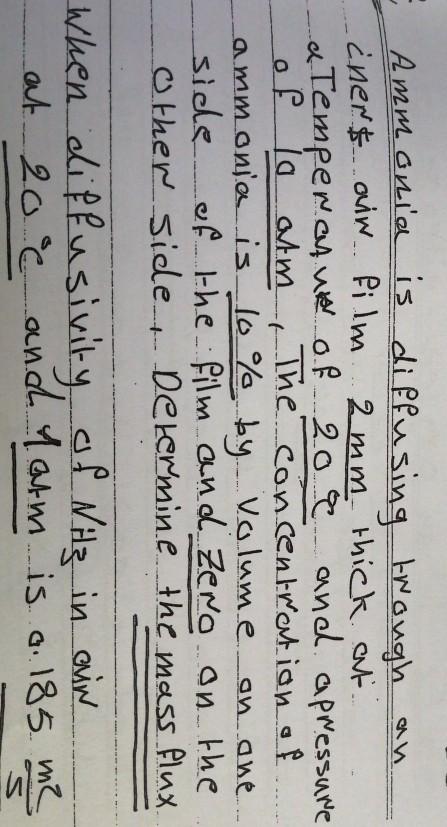 Ammonia is diffusing trough an
inert air film 2mm thick at
a Temperature of 20°C and a pressure
of 10 atm, The concentration of
ammonia is 10% by volume on one
side of the film and zero on the
other side, Determine the mass flux
When diffusivity of NH3 in air
at 20°C and 1 atm is 0.185 m²/s